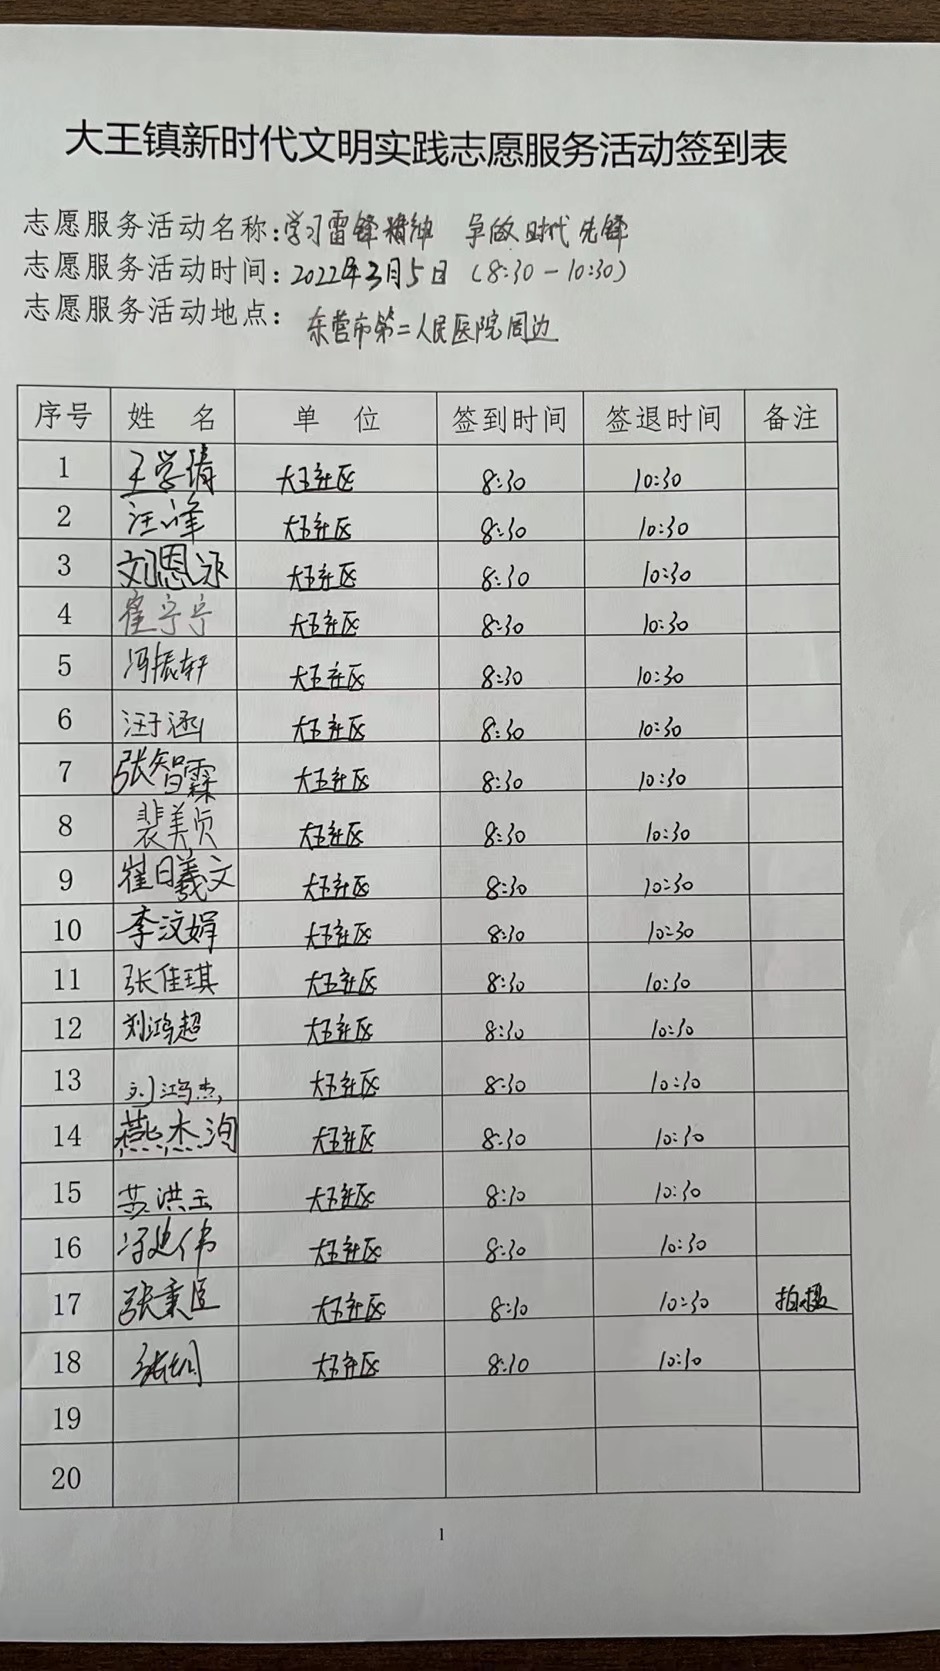 大王镇新时代文明实践志愿服务活动签到表
志愿服务活动名称:学习雷锋精神 争做时代先锋
志愿服务活动时间:2022年3月5日(8:30-10:30)
志愿服务活动地点: 东营市第二人民医院周边
序号 姓 名 单 位 签到时间 签退时间 备注
1 王学靖 大王社区 8:30 10:30
2 汪峰 大王社区 8:30 10:30
3 刘恩泳 大王社区 8:30 10:30
4 崔宁宁 大王社区 8:30 10:30
5 冯振轩 大王社区 8:30 10:30
6 汪子涵 大王社区 8:30 10:30
7 张智霖 大王社区 8:30 10:30
8 裴美贞 大王社区 8:30 10:30
9 崔日羲文 大王社区 8:30 10:30
10 李汶娟 大王社区 8:30 10:30
11 张佳琪 大王社区 8:30 10:30
12 刘鸿超 大王社区 8:30 10:30
13 刘鸿杰 大王社区 8:30 10:30
14 燕杰洵 大王社区 8:30 10:30
15 苏洪玉 大王社区 8:30 10:30
16 冯延伟 大王社区 8:30 10:30
17 张秉臣 大王社区 8:30 10:30 拍摄
18 大王社区 8:30 10:30
19
20
1